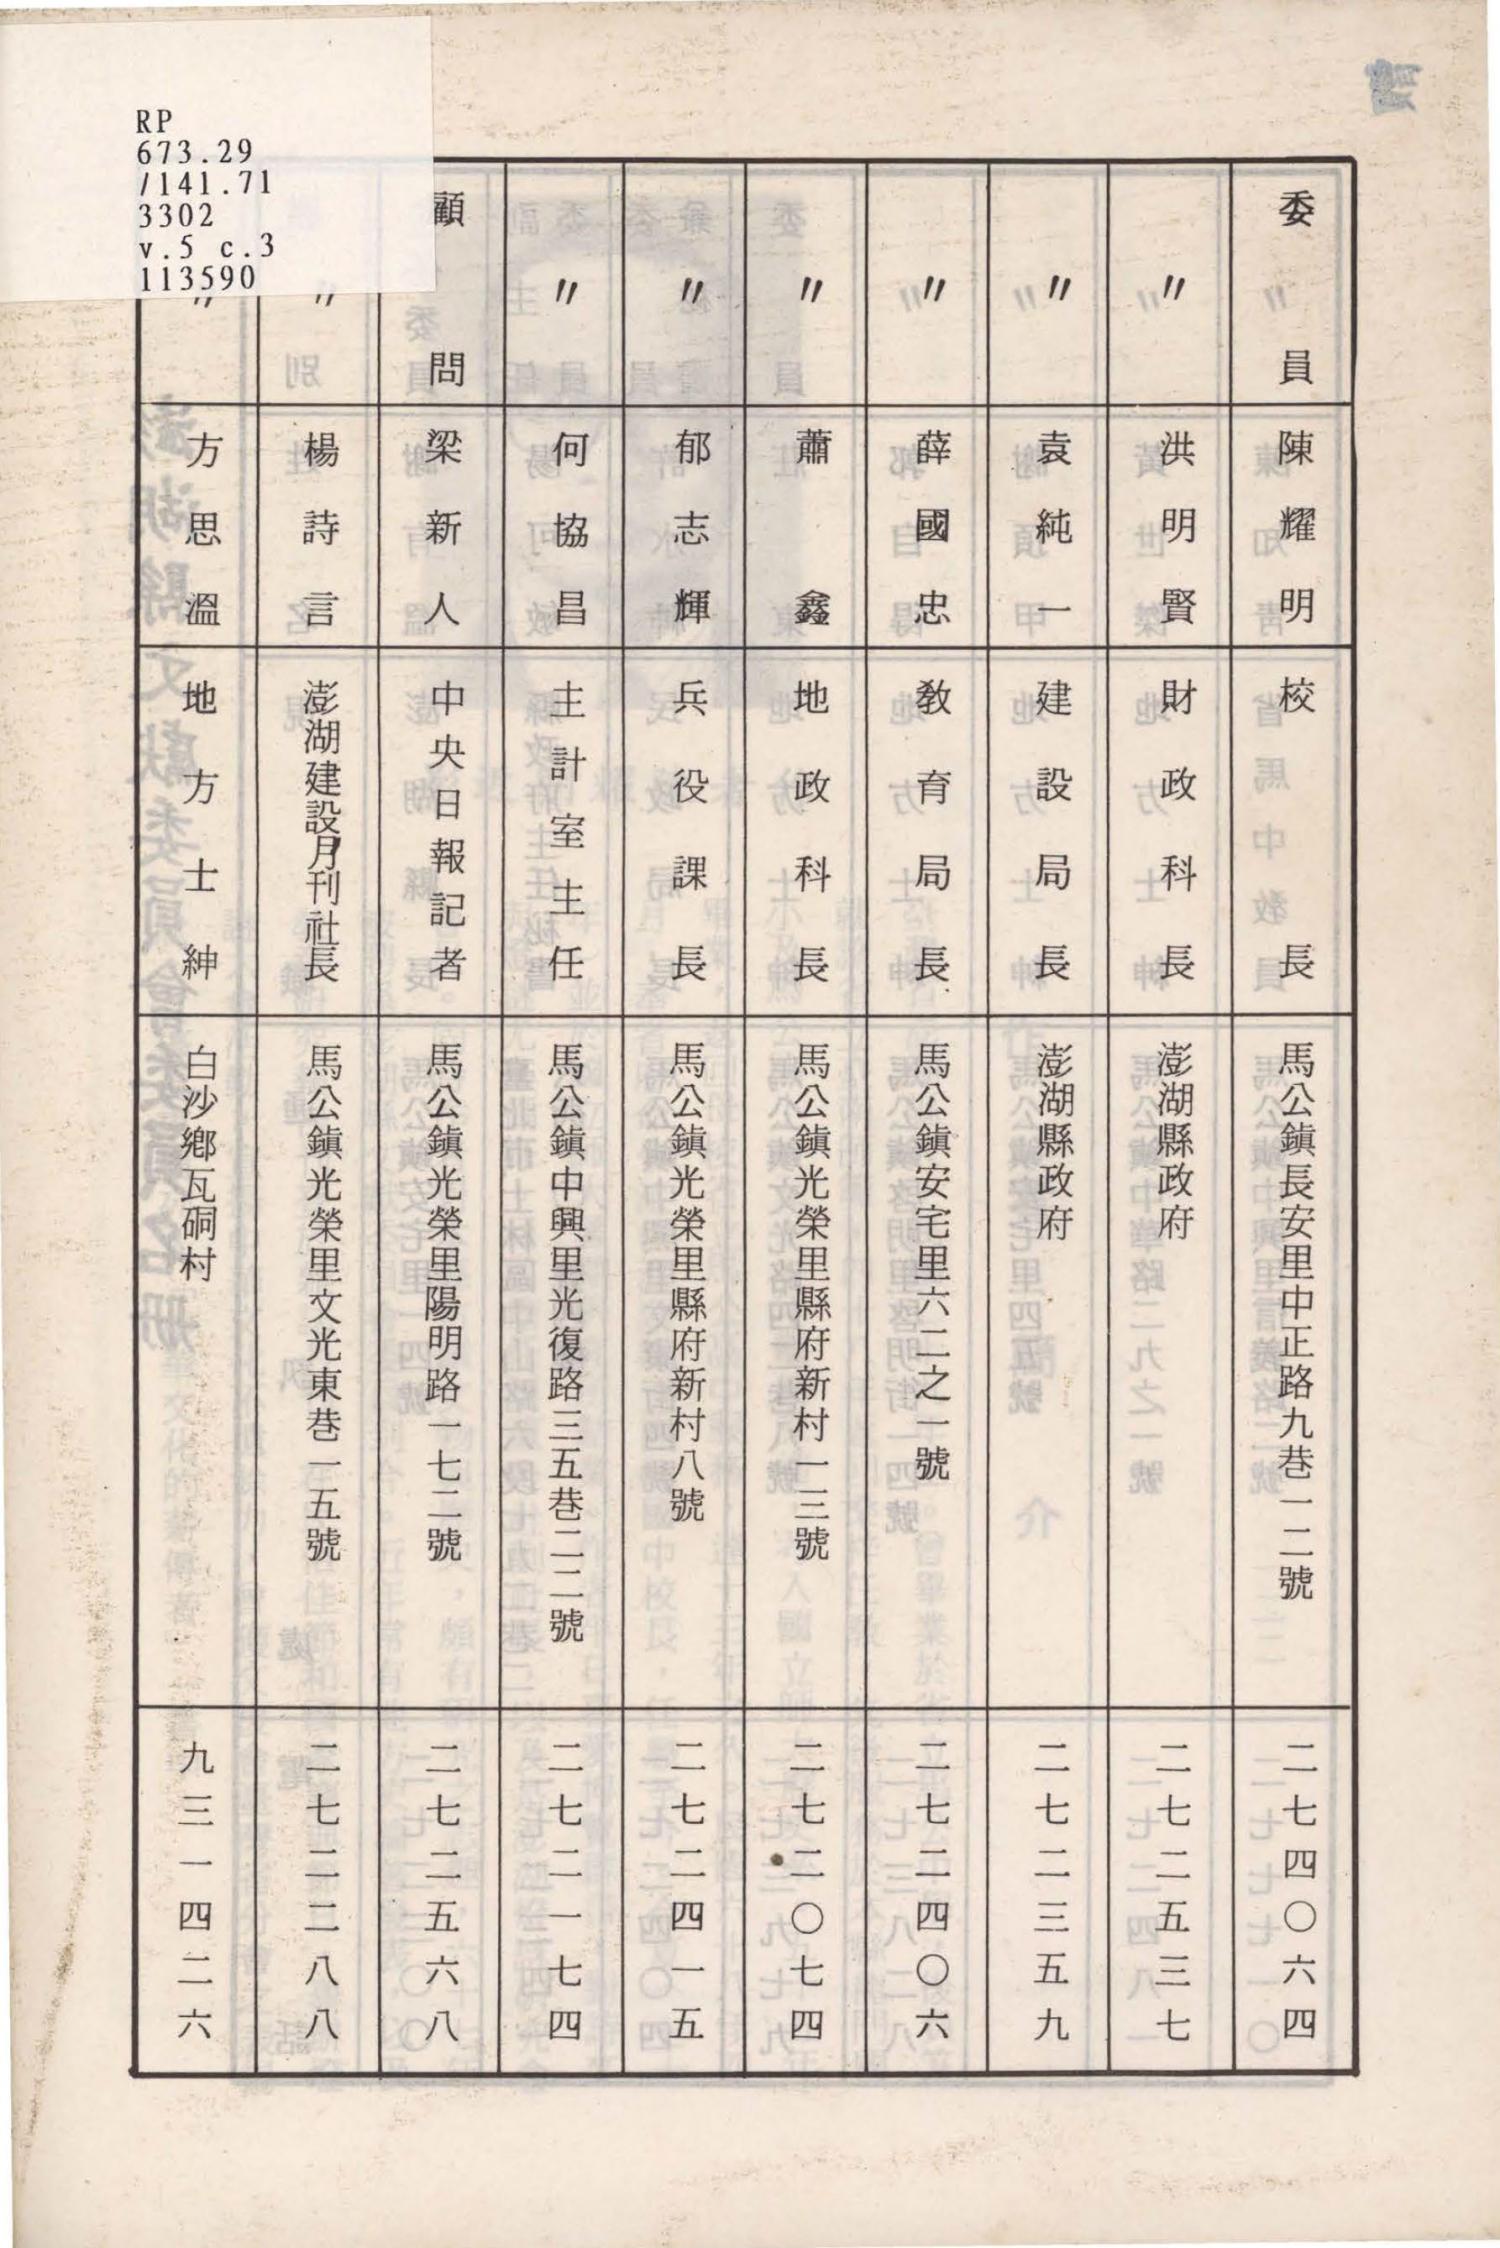 RP
673.29
/141.71
3302
v.5 c.3
113590
委員 陳耀明 校長 馬公鎮長安里中正路九巷一二號 二七四〇六四
〃 洪明賢 財政科長 澎湖縣政府 二七二五三七
〃 袁純一 建設局長 澎湖縣政府 二七二三五九
〃 薛國忠 教育局長 馬公鎮安宅里六二之一號 二七二四〇六
〃 蕭鑫 地政科長 馬公鎮光榮里縣府新村一三號 二七二〇七四
〃 郁志輝 兵役課長 馬公鎮光榮里縣府新村八號 二七二四一五
〃 何協昌 主計室主任 馬公鎮中興里光復路三五巷二二號 二七二一七四
顧問 梁新人 中央日報記者 馬公鎮光榮里陽明路一七二號 二七二五六八
〃 楊詩言 澎湖建設月刊社長 馬公鎮光榮里文光東巷一五號 二七二二八八
〃 方思溫 地方士紳 白沙鄉瓦硐村 九三一四二六